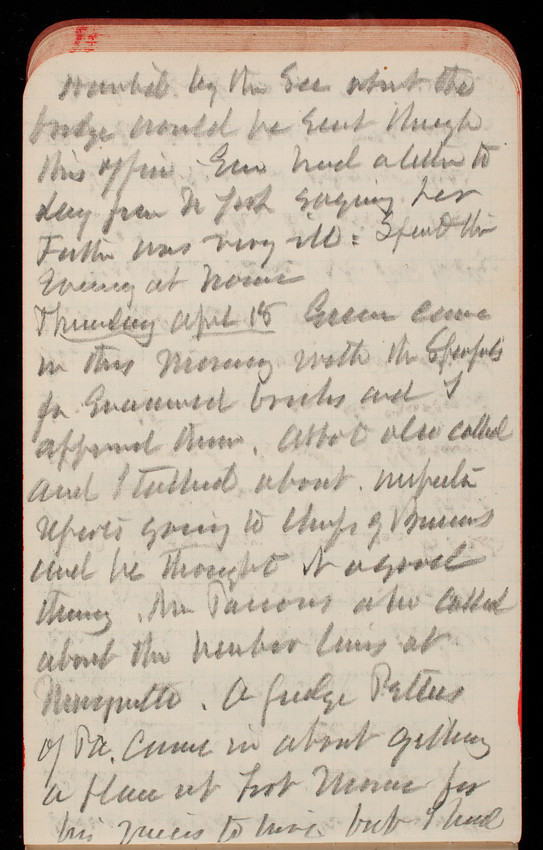 by the Sec what the
would be sent through
this office. had a letter to
day from N York saying her
Father was very ill. Spent the
Evening at home
Thursday April 18 Green came
in this morning with the proposals
for Enameled bricks and I
approved them. Abbot also called
and I talked about
reports going to Chief of Bureaus
and he thought it a good
thing. Mr Parsons also called
about the harbor lines at
Marquette. A Judge Petters
of Pa. came in about getting
a place at Fort Monroe for
his to but I had